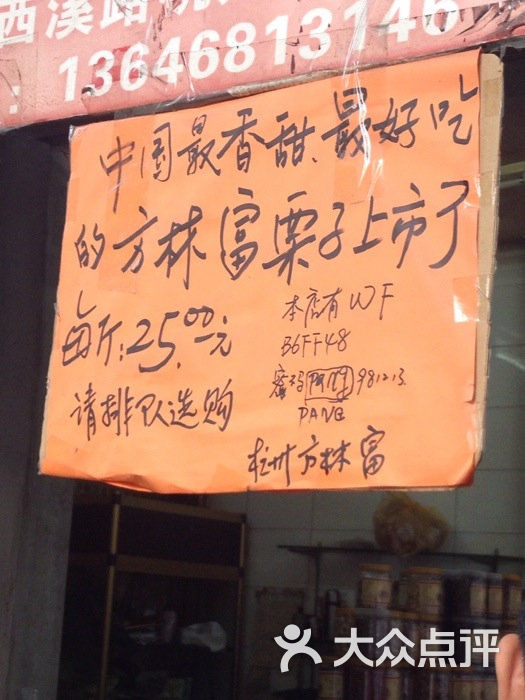 西溪路
: 13646813146
中国最香甜、最好吃
的方林富栗子上市了
每斤:25.00元
请排队选购
本店有WF
B6FF48
密码 981213
PANG
杭州方林富
大众点评